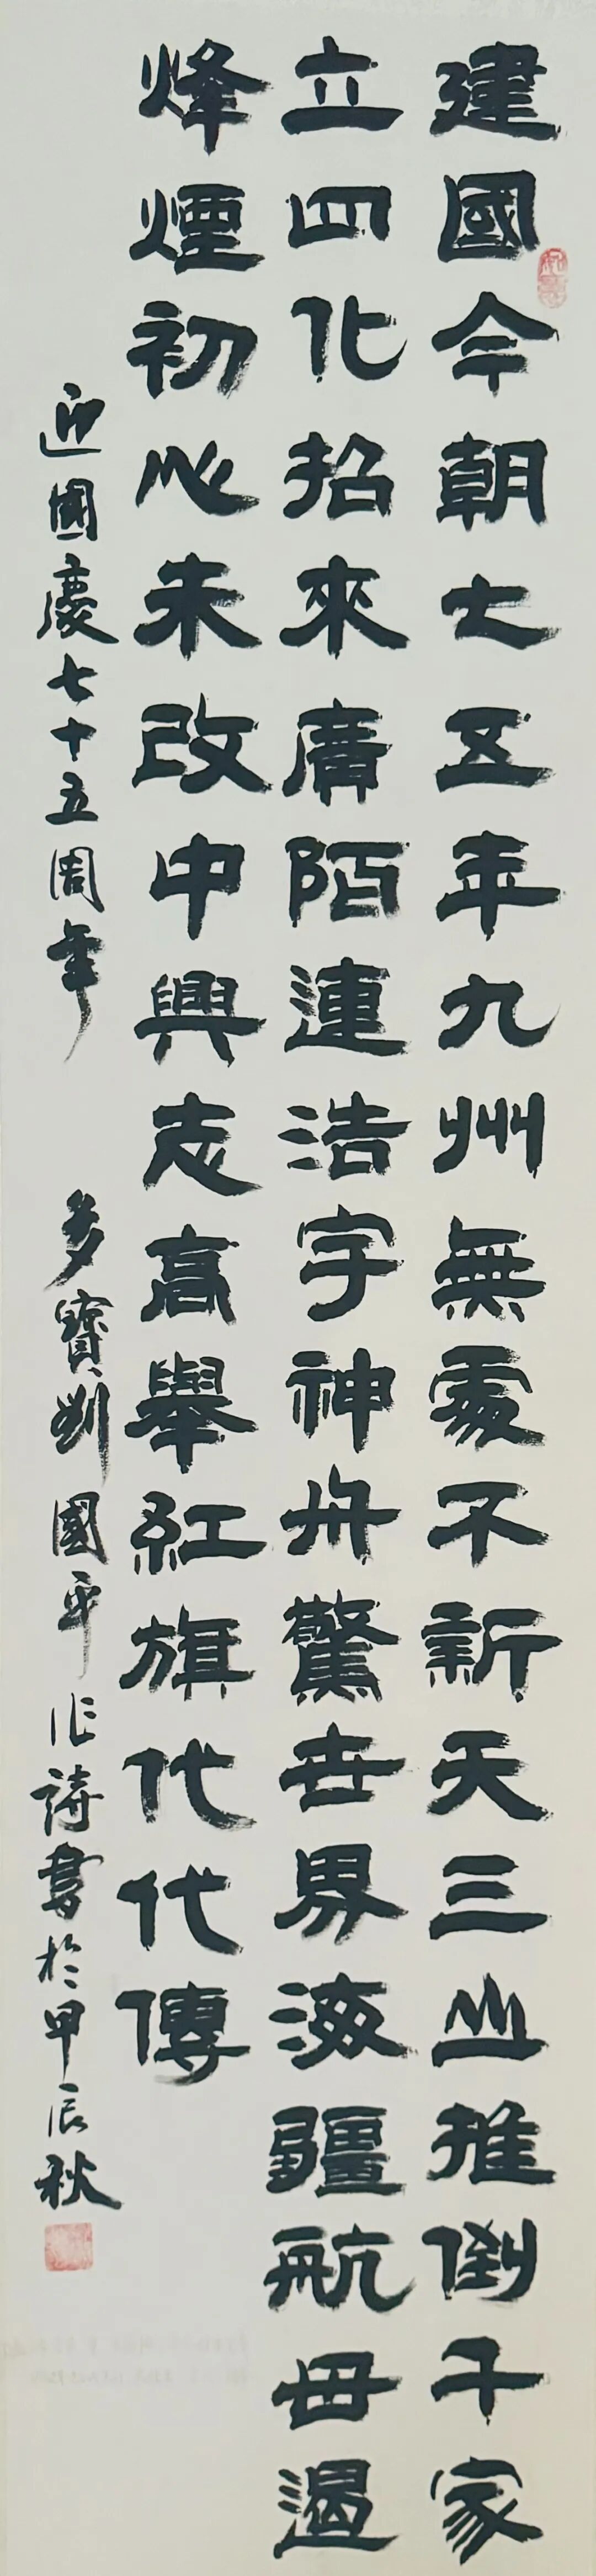 建國今朝七五年九州無處不新天三山推倒千家
立四化招來廣陌連浩宇神舟驚世界海疆航母遏
烽煙初心未改中興志高舉紅旗代代傳
迎國慶七十五周年 多寶劉國平作詩書於甲辰秋